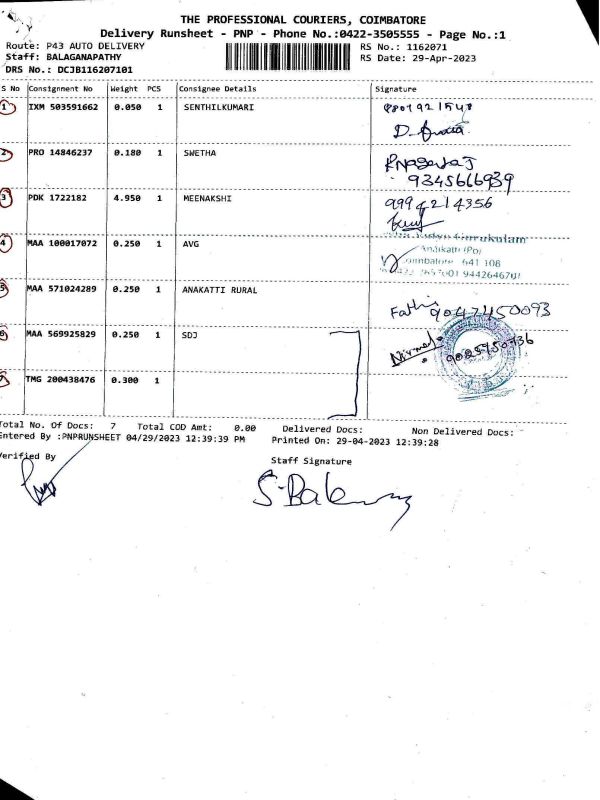 THE PROFESSIONAL COURIERS, COIMBATORE
Delivery Runsheet - PNP - Phone No.:0422-3505555 - Page No.:1
Route: P43 AUTO DELIVERY
RS No.: 1162071
Staff: BALAGANAPATHY
RS Date: 29-Apr-2023
DRS No.: DCJB116207101
S No Consignment No Weight PCS Consignee Details Signature
1 IXM 503591662 0.050 1 SENTHILKUMARI
D.
2 PRO 14846237 0.180 1 SWETHA
9345666939
3 PDK 1722182 4.950 1 MEENAKSHI 9994214356
4 MAA 100017072 0.250 1 AVG
Gurukulam
Anaikatti (Po)
Coimbatore 641 108
9442646701
5 MAA 571024289 0.250 1 ANAKATTI RURAL
9047450093
6 MAA 569925829 0.250 1 SDJ
Nirmal 9025750736
7 TMG 200438476 0.300 1
Total No. Of Docs: 7 Total COD Amt: 0.00 Delivered Docs: Non Delivered Docs:
Entered By :PNPRUNSHEET 04/29/2023 12:39:39 PM Printed On: 29-04-2023 12:39:28
Verified By
Staff Signature